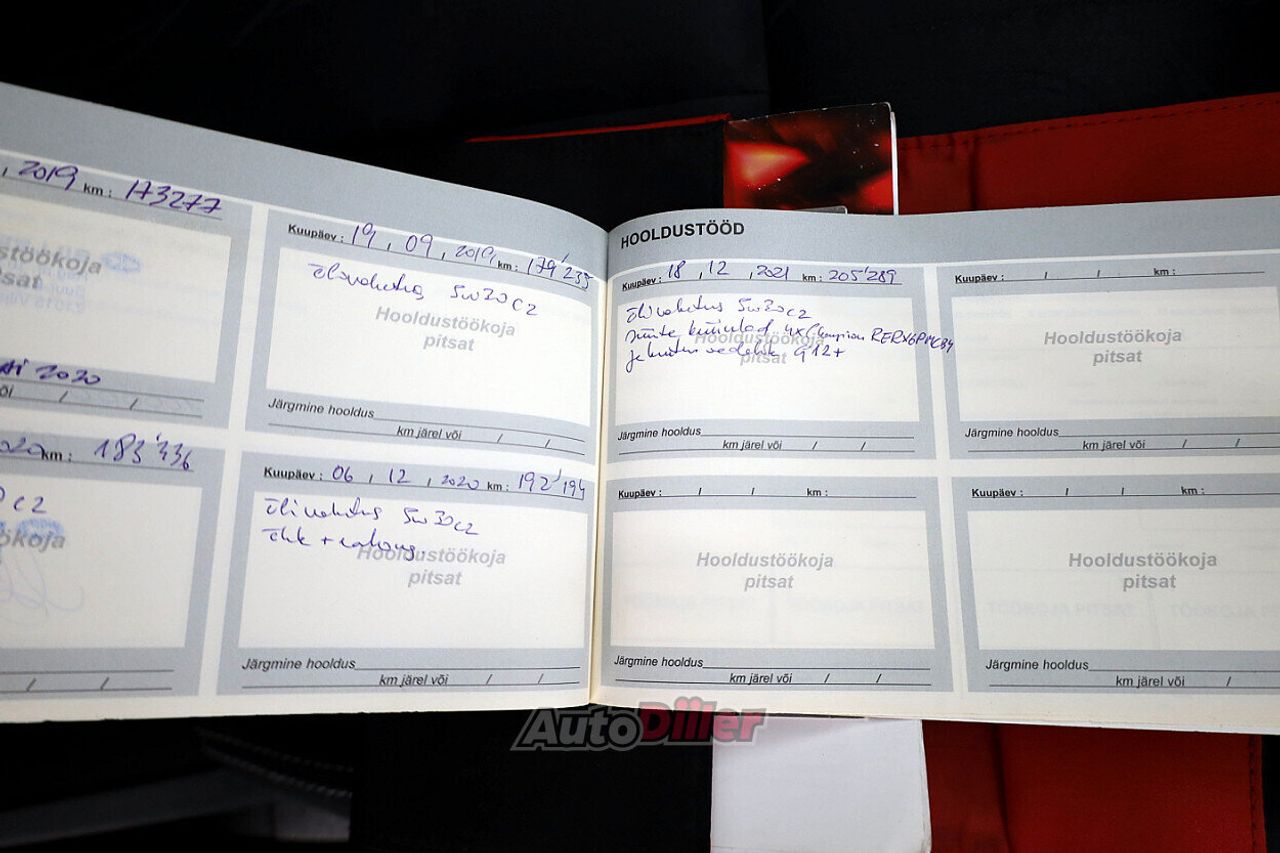 , 2019 km : 173277
stöökoja
sat
2020
või / /
2020 km : 183'436
C2
ökoja
/ /
Kuupäev : 19 , 09 , 2019 km : 179'235
Õlivahetus 5w30 C2
Hooldustöökoja
pitsat
Järgmine hooldus
km järel või / /
Kuupäev : 06 , 12 , 2020 km : 192'194
Õlivahetus 5w30 C2
Õhk +
Hooldustöökoja
pitsat
Järgmine hooldus
km järel või / /
HOOLDUSTÖÖD
Kuupäev : 18 , 12 , 2021 km : 205'289
Õlivahetus 5w30 C2
süüte küünlad 4x Champion RER8
Hooldustöökoja
jahutus vedelik G12+
pitsat
Järgmine hooldus
km järel või / /
Kuupäev : / / km :
Hooldustöökoja
pitsat
Järgmine hooldus
km järel või / /
Kuupäev : / / km :
Hooldustöökoja
pitsat
Järgmine hooldus
km järel või / /
Kuupäev : / / km :
Hooldustöökoja
pitsat
Järgmine hooldus
km järel või /
AutoDiiler